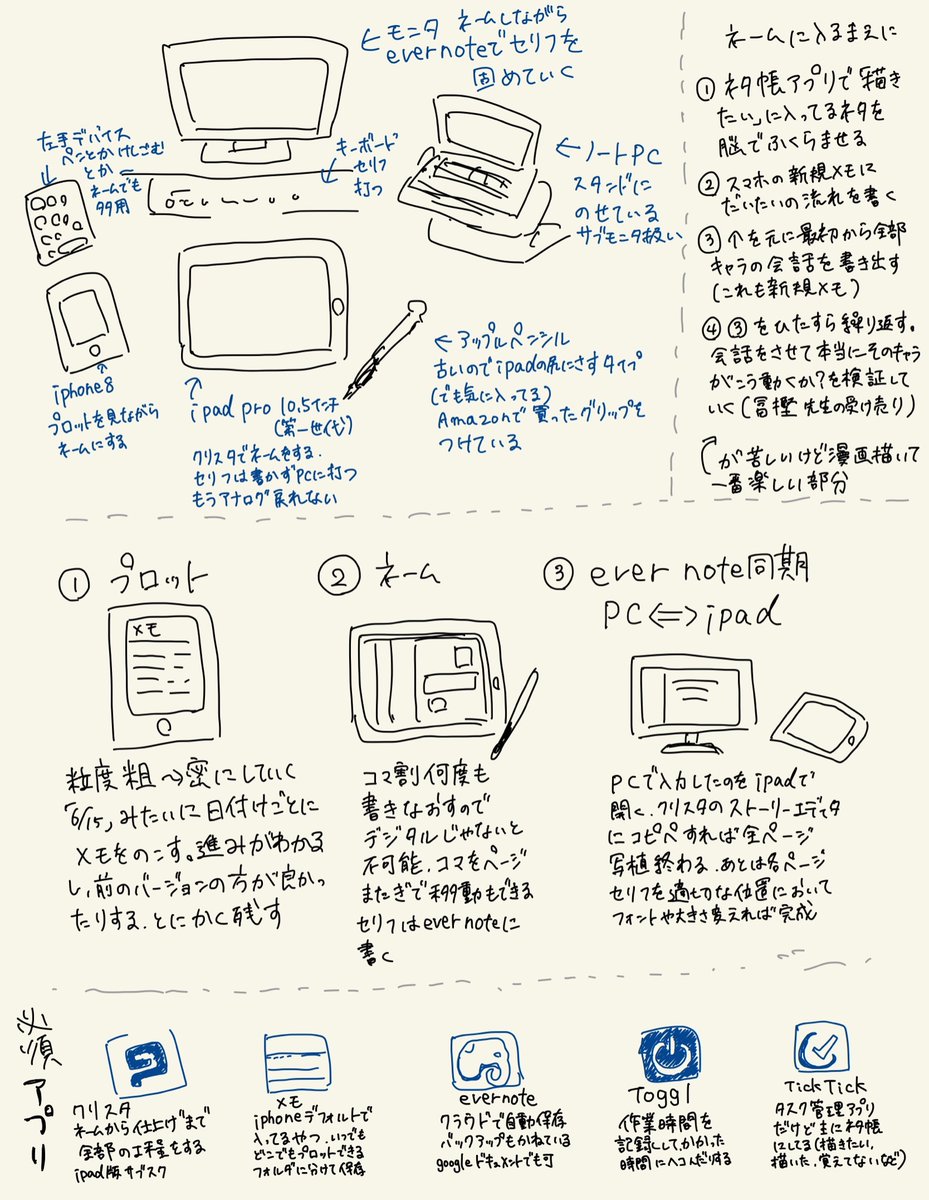 ←モニタ ネームしながら
evernoteでセリフを
固めていく
左手デバイス
ペンとかけしごむ
とか
ネームでも
多用
キーボード
セリフ
打つ
←ノートPC
スタンドに
のせている
サブモニタ扱い
iphone8
プロットを見ながら
ネームにする
ipad pro 10.5インチ
(第一世代)
クリスタでネームをする.
セリフは書かずPCに打つ
もうアナログ戻れない
←アップルペンシル
古いのでipadの尻にさすタイプ
(でも気に入ってる)
Amazonで買ったグリップを
つけている
ネームに入るまえに
① ネタ帳アプリで「描き
たい」に入ってるネタを
脳でふくらませる
② スマホの新規メモに
だいたいの流れを書く
③ ↑を元に最初から全部
キャラの会話を書き出す
(これも新規メモ)
④ ③をひたすら繰り返す。
会話をさせて本当にそのキャラ
がこう動くか?を検証して
いく(冨樫先生の受け売り)
が苦しいけど漫画描いて
一番楽しい部分
① プロット
メモ
粒度粗→密にしていく
「6/15」みたいに日付けごとに
メモをのこす。進みがわかる
し、前のバージョンの方が良かっ
たりする.とにかく残す
② ネーム
コマ割何度も
書きなおすので
デジタルじゃないと
不可能.コマをページ
またぎで移動もできる
セリフはevernoteに
書く
③ evernote同期
PC⇔ipad
PCで入力したのをipadで
開く.クリスタのストーリーエディタ
にコピペすれば全ページ
写植終わる.あとは各ページ
セリフを適切な位置において
フォントや大きさ変えれば完成
必須アプリ
クリスタ
ネームから仕上げまで
全部の工程をする
ipad版サブスク
メモ
iphoneデフォルトで
入ってるやつ.いつでも
どこでもプロットできる
フォルダに分けて保存
evernote
クラウドで自動保存
バックアップもかねている
googleドキュメントでも可
Toggl
作業時間を
記録して、かかった
時間にヘコんだりする
TickTick
タスク管理アプリ
だけど主にネタ帳
にしてる(描きたい、
描いた、覚えてないなど)